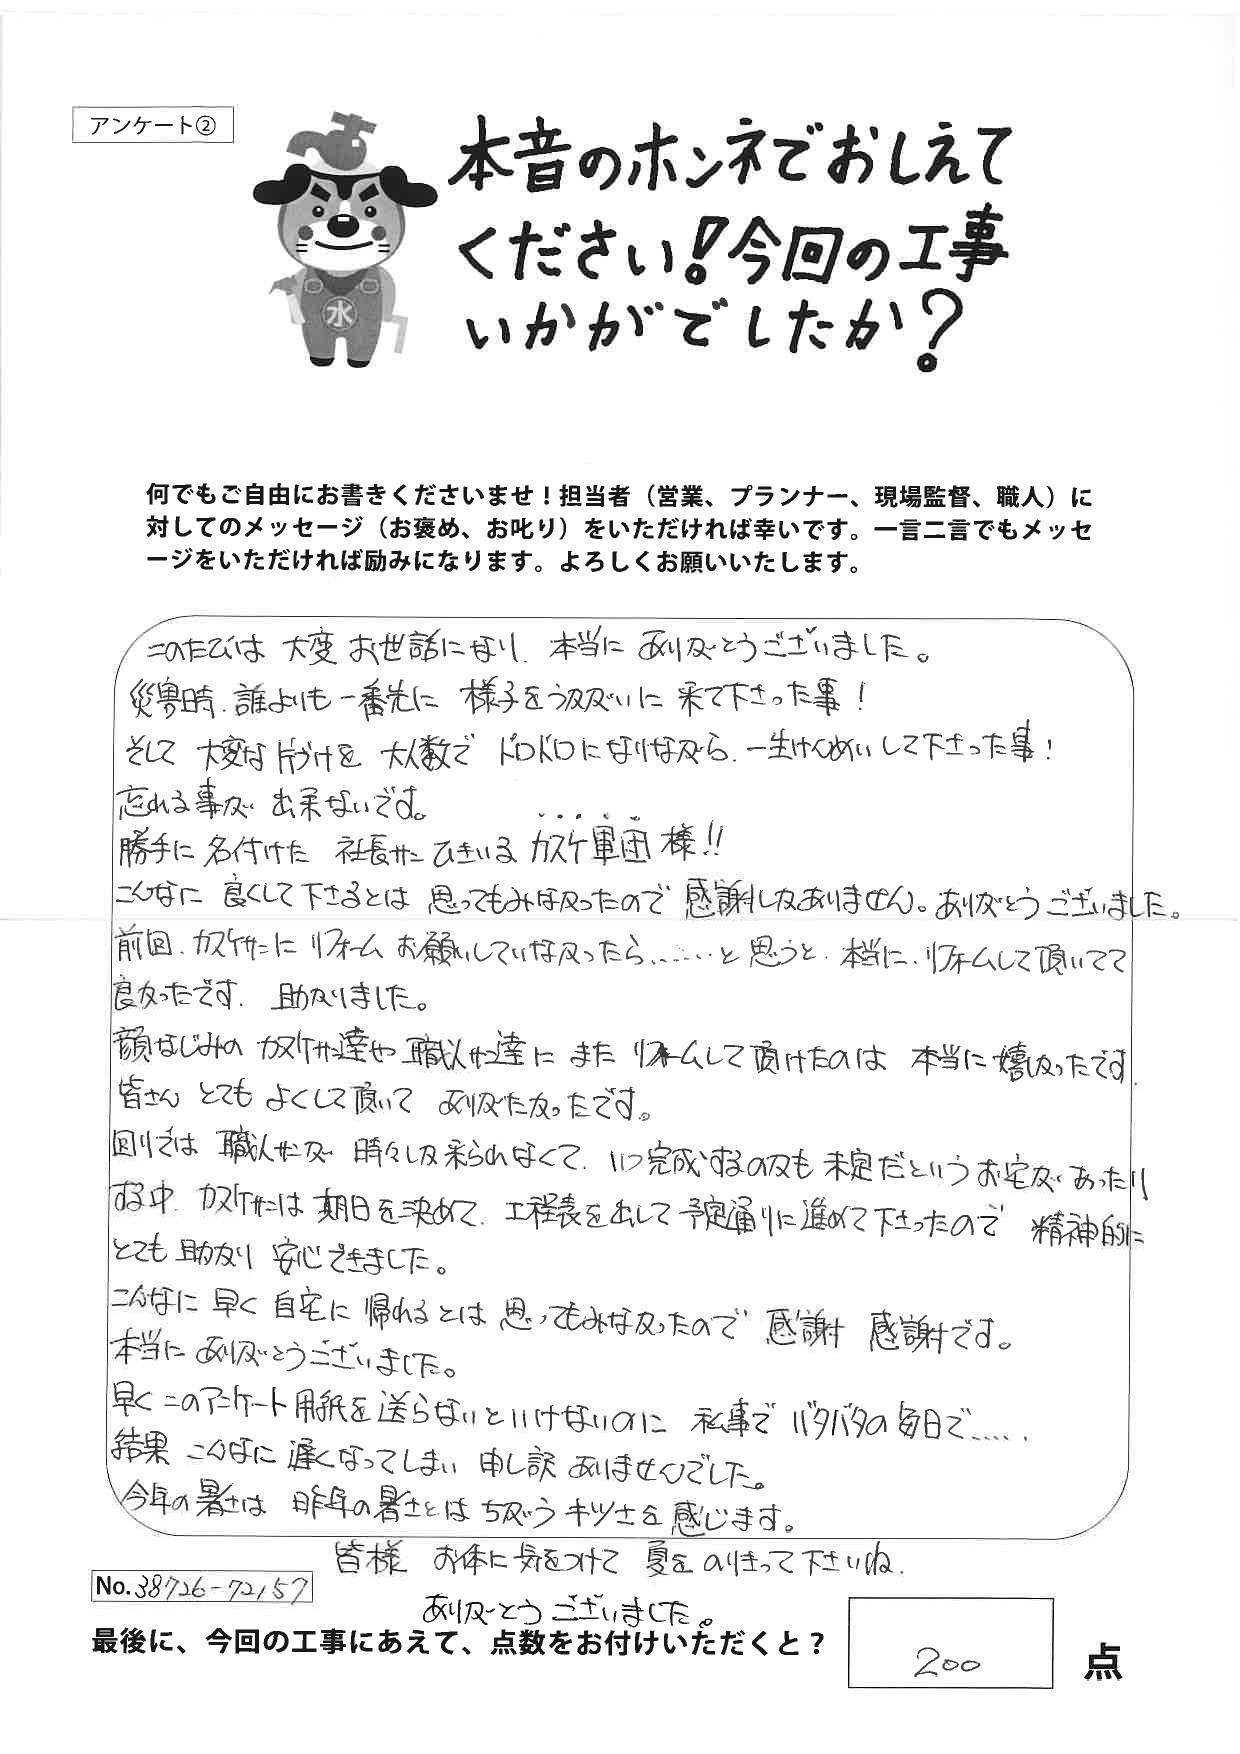 アンケート②
本音のホンネでおしえて
ください!今回の工事
いかがでしたか?
水
何でもご自由にお書きくださいませ！担当者（営業、プランナー、現場監督、職人）に
対してのメッセージ（お褒め、お叱り）をいただければ幸いです。一言二言でもメッセ
ージをいただければ励みになります。よろしくお願いいたします。
このたびは 大変 お世話になり、本当に ありがとうございました。
災害時、誰よりも 一番先に 様子をうかがいに 来て下さった事!
そして 大変な片づけを 大人数で ドロドロになりながら、一生けんめいして下さった事!
忘れる事が 出来ないです。
勝手に 名付けた 社長サンひきいる カスケ軍団様!!
こんなに 良くして下さるとは 思ってもみなかったので 感謝しかありません。ありがとうございました。
前回、カスケサンに リフォーム お願いしていなかったら……と 思うと、本当に、リフォームして頂いてて
良かったです、助かりました。
顔なじみの カスケサン達や 職人サン達に また リフォームして頂けたのは 本当に嬉しかったです、
皆さん とても よくして頂いて ありがたかったです。
回りでは 職人サンが 時々しか来られなくて、いつ完成するのかも未定だという お宅が あったり
する中、カスケサンは 期日を決めて、工程表を出して 予定通りに進めて下さったので 精神的に
とても 助かり 安心できました。
こんなに 早く 自宅に 帰れるとは 思ってもみなかったので 感謝 感謝です。
本当に ありがとうございました。
早く このアンケート用紙を送らないといけないのに 私事で バタバタの毎日で……
結果 こんなに 遅くなってしまい 申し訳ありませんでした。
今年の暑さは 昨年の暑さとは ちがう キツさを感じます。
皆様 お体に気をつけて 夏を のりきって下さいね。
ありがとう ございました。
No.38726-72157
最後に、今回の工事にあえて、点数をお付けいただくと？
200
点